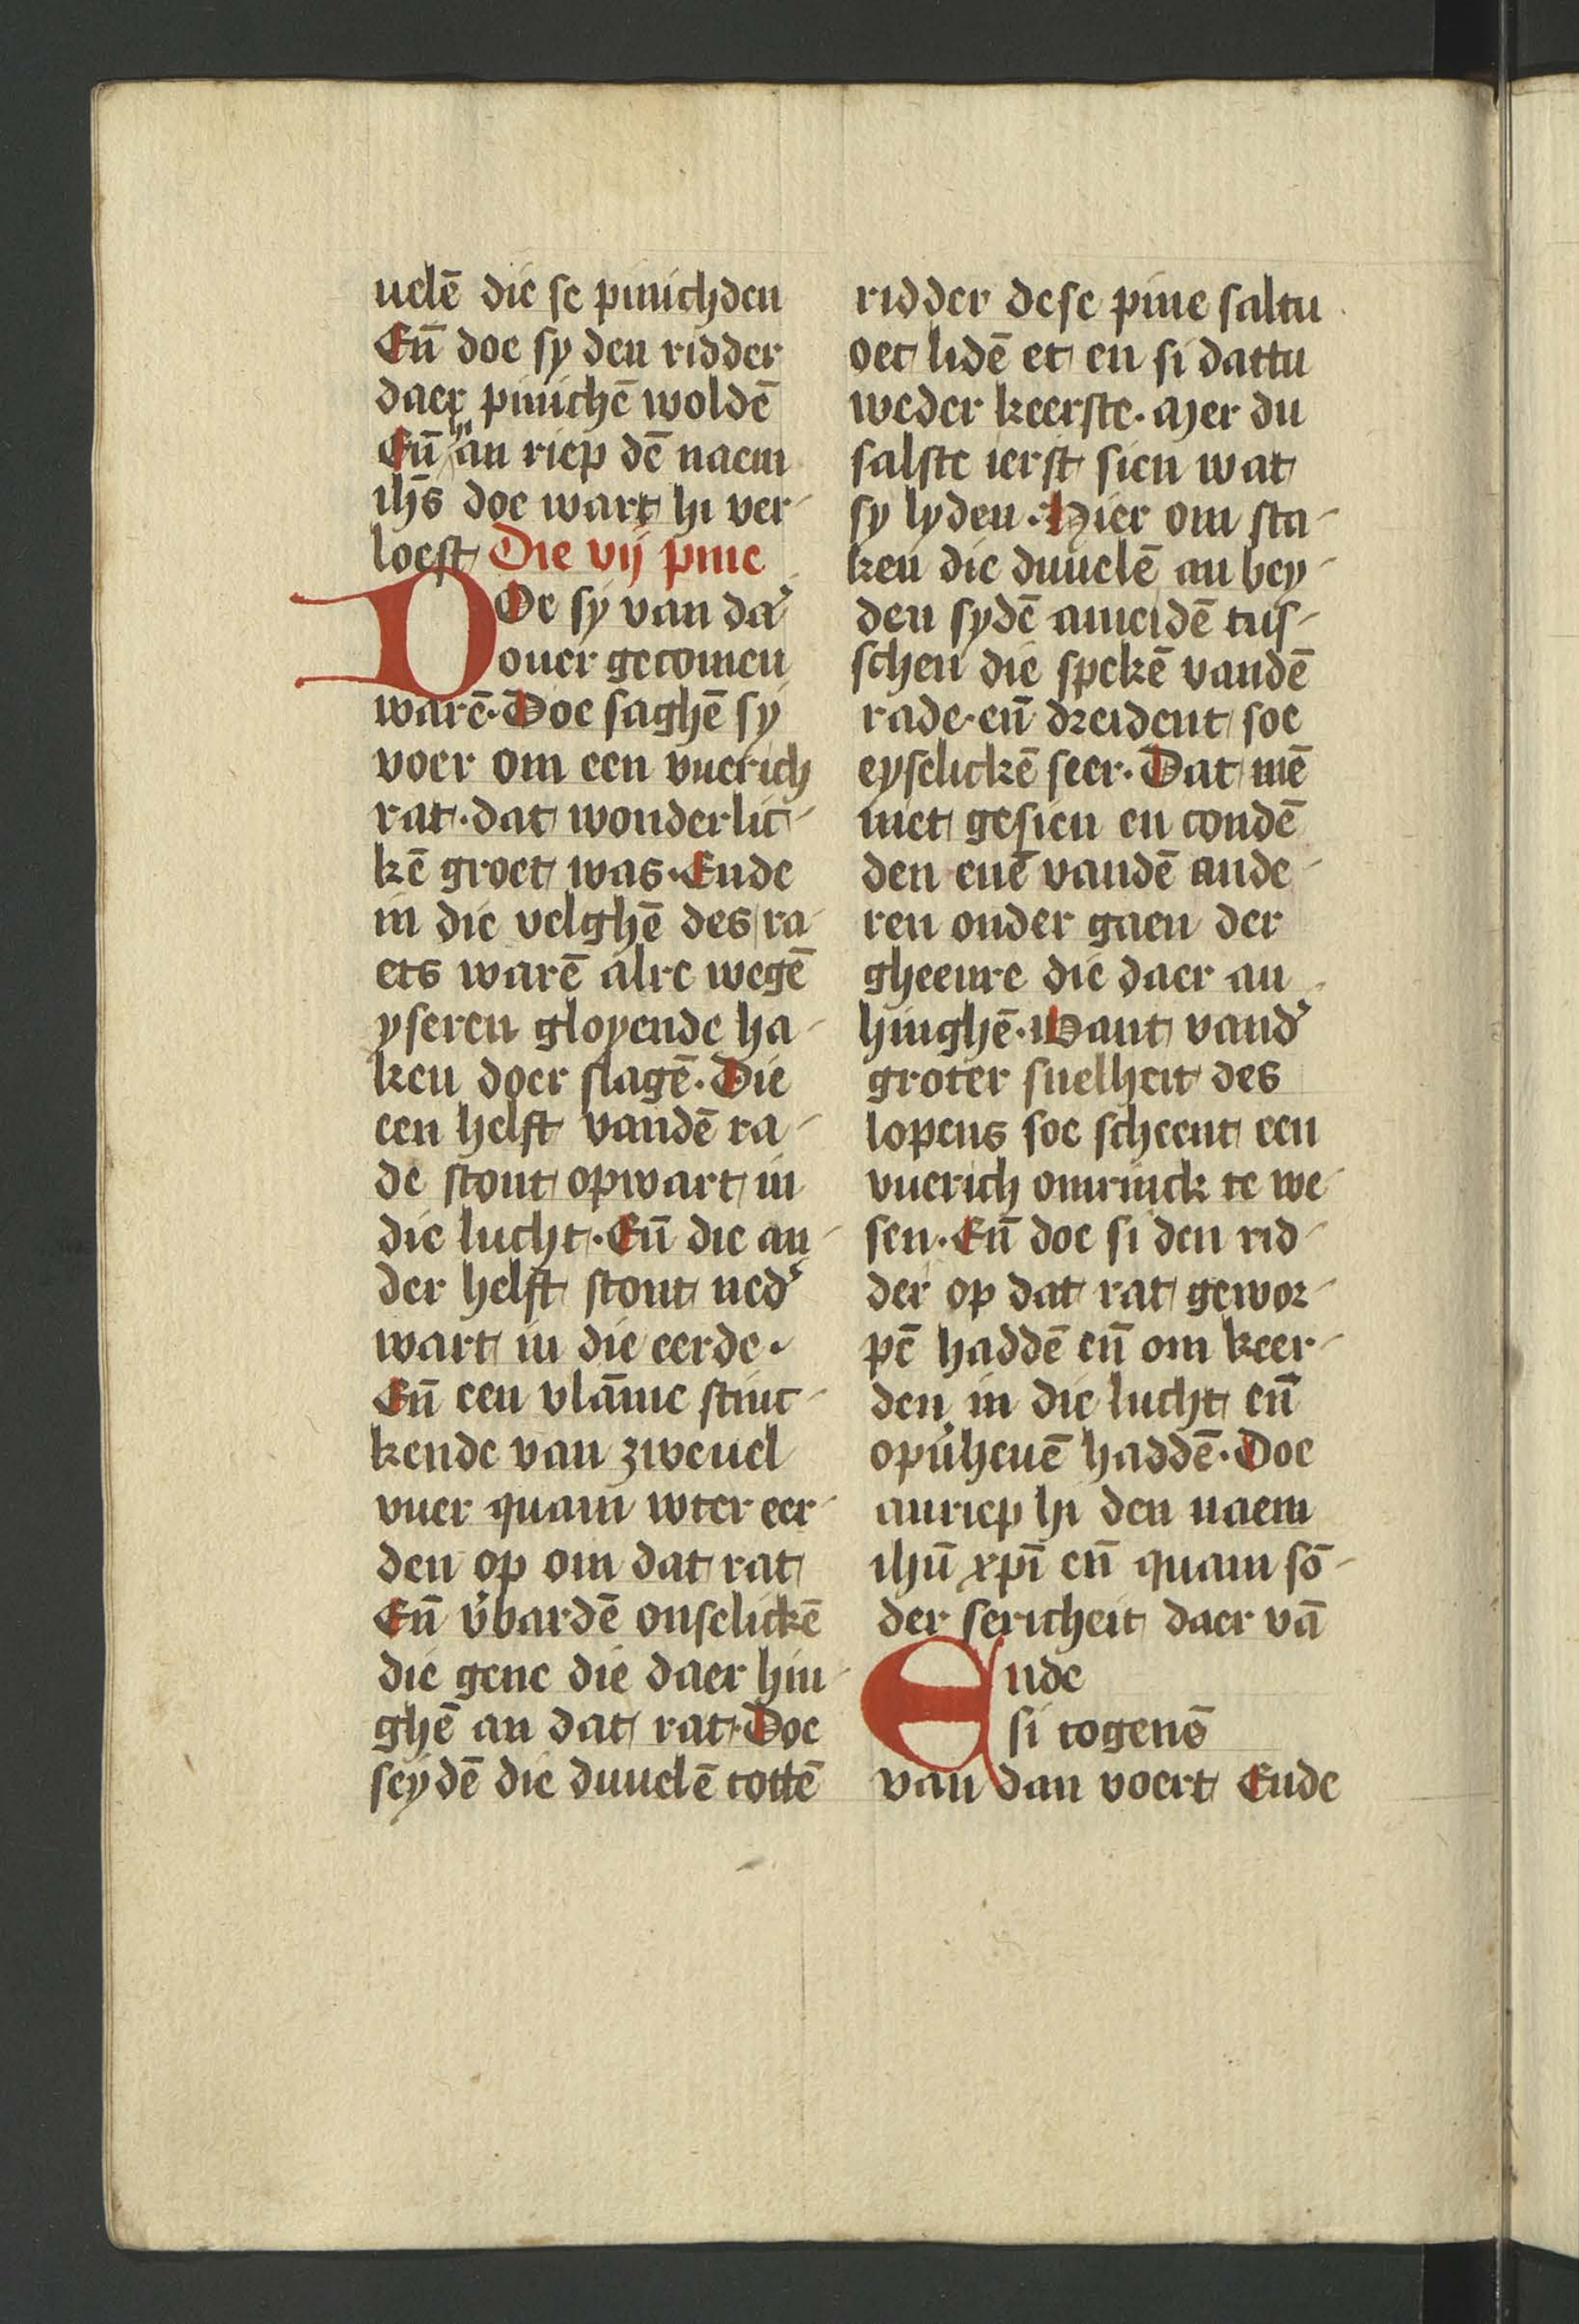 uelē die se pinichden
Eñ doe sy den ridder
daer pinichē woldē
Eñ hi an riep dē naem
ihs̄ doe wart hi ver-
loest Die vij pine
DOe sy van da'
ouer gecomen
warē. Doe saghē sy
voer om een vuerich
rat. dat wonderlic-
kē groet was. Ende
in die velghē des ra-
ets warē alre wegē
yseren gloyende ha-
ken doer slagē. Die
een helft vandē ra-
de stont opwart in
die lucht. Eñ die an-
der helft stont ned'
wart in die eerde.
Eñ een vlāme stinc-
kende van zweuel
vuer quam wter eer-
den op om dat rat
Eñ v'bardē onselickē
die gene die daer hin-
ghē an dat rat. Doe
seydē die duuelē tottē
ridder dese pine saltu
oec lidē et en si dattu
weder keerste. Mer du
salste ierst sien wat
sy lyden. Hier om sta-
ken die duuelē an bey-
den sydē ameidē tus-
schen die spekē vandē
rade. eñ dreident soe
eyselickē seer. Dat mē
niet gesien en condē
den enē vandē ande-
ren onder gaen der
gheenre die daer an
hinghē. Want vand'
groter snelheit des
lopens soe scheent een
vuerich omrinck te we-
sen. Eñ doe si den rid-
der op dat rat gewor-
pē haddē eñ om keer-
den in die lucht eñ
opu'heuē haddē. Doe
anriep hi den naem
ihū xpī eñ quam sō-
der sericheit daer vā
Ende
si togenē
van dan voert Ende